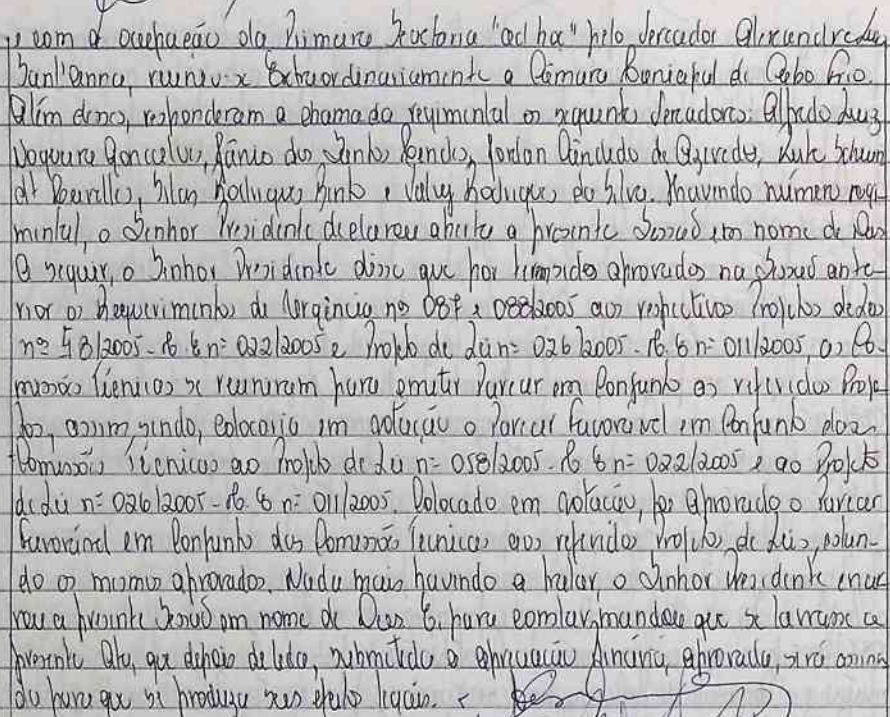 e com a ocupação da Primeira Secretaria "ad hoc" pelo Vereador Alexandre de
Sant'Anna, reuniu-se Extraordinariamente a Câmara Municipal de Cabo Frio.
Além desses, responderam a chamada regimental os seguintes Vereadores: Alfredo Luiz
Nogueira Gonçalves, Jânio dos Santos Mendes, Jordan Cândido de Azevedo, Rute Schuin
dt Meirelles, Silas Rodrigues Bento e Valcy Rodrigues da Silva. Havendo número regi-
mental, o Senhor Presidente declarou aberta a presente Sessão em nome de Deus
A seguir, o Senhor Presidente disse que por terem sido aprovados na Sessão ante-
rior os Requerimentos de Urgência nºs 087 e 088/2005 aos respectivos Projetos de Leis
nºs 58/2005 - M. E. nº 022/2005 e Projeto de Lei nº 026/2005 - M. E. nº 011/2005, as Co-
missões Técnicas se reuniram para emitir Parecer em Conjunto aos referidos Proje-
tos, assim, sendo, colocaria em votação o Parecer Favorável em Conjunto das
Comissões Técnicas ao Projeto de Lei nº 058/2005 - M. E. nº 022/2005 e ao Projeto
de Lei nº 026/2005 - M. E. nº 011/2005. Colocado em votação, foi aprovado o Parecer
Favorável em Conjunto das Comissões Técnicas aos referidos Projetos, de Leis, estan-
do os mesmos aprovados. Nada mais havendo a tratar, o Senhor Presidente encer
rou a presente Sessão em nome de Deus E, para constar, mandou que se lavrasse a
presente Ata, que depois de lida, submetida a apreciação Plenária, aprovada, será assina
da para que se produza seus efeitos legais.